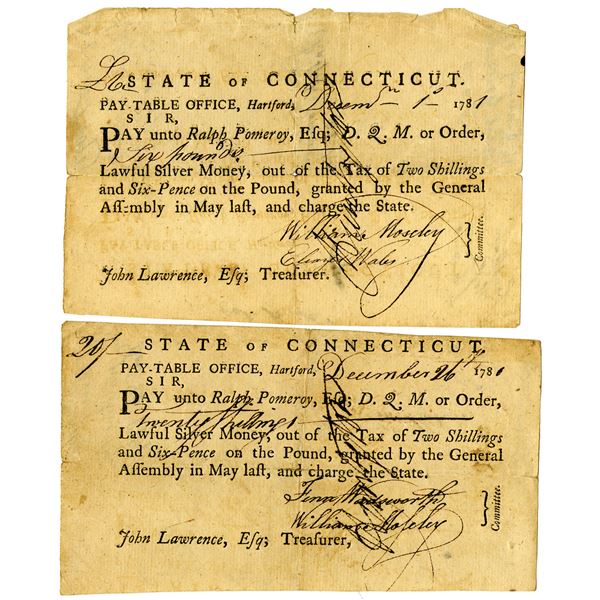 STATE OF CONNECTICUT.
PAY-TABLE OFFICE, Hartford, Decemr 1st 1781
SIR,
PAY unto Ralph Pomeroy, Esq; D. Q. M. or Order,
Six pounds
Lawful Silver Money, out of the Tax of Two Shillings
and Six-Pence on the Pound, granted by the General
Assembly in May last, and charge the State.
William Moseley
Eleazer Wales
Committee.
John Lawrence, Esq; Treasurer.
20/ STATE OF CONNECTICUT.
PAY-TABLE OFFICE, Hartford, December 26th 1781
SIR,
PAY unto Ralph Pomeroy, Esq; D. Q. M. or Order,
Twenty Shillings
Lawful Silver Money, out of the Tax of Two Shillings
and Six-Pence on the Pound, granted by the General
Assembly in May last, and charge the State.
Wadsworth
William Moseley
Committee.
John Lawrence, Esq; Treasurer,